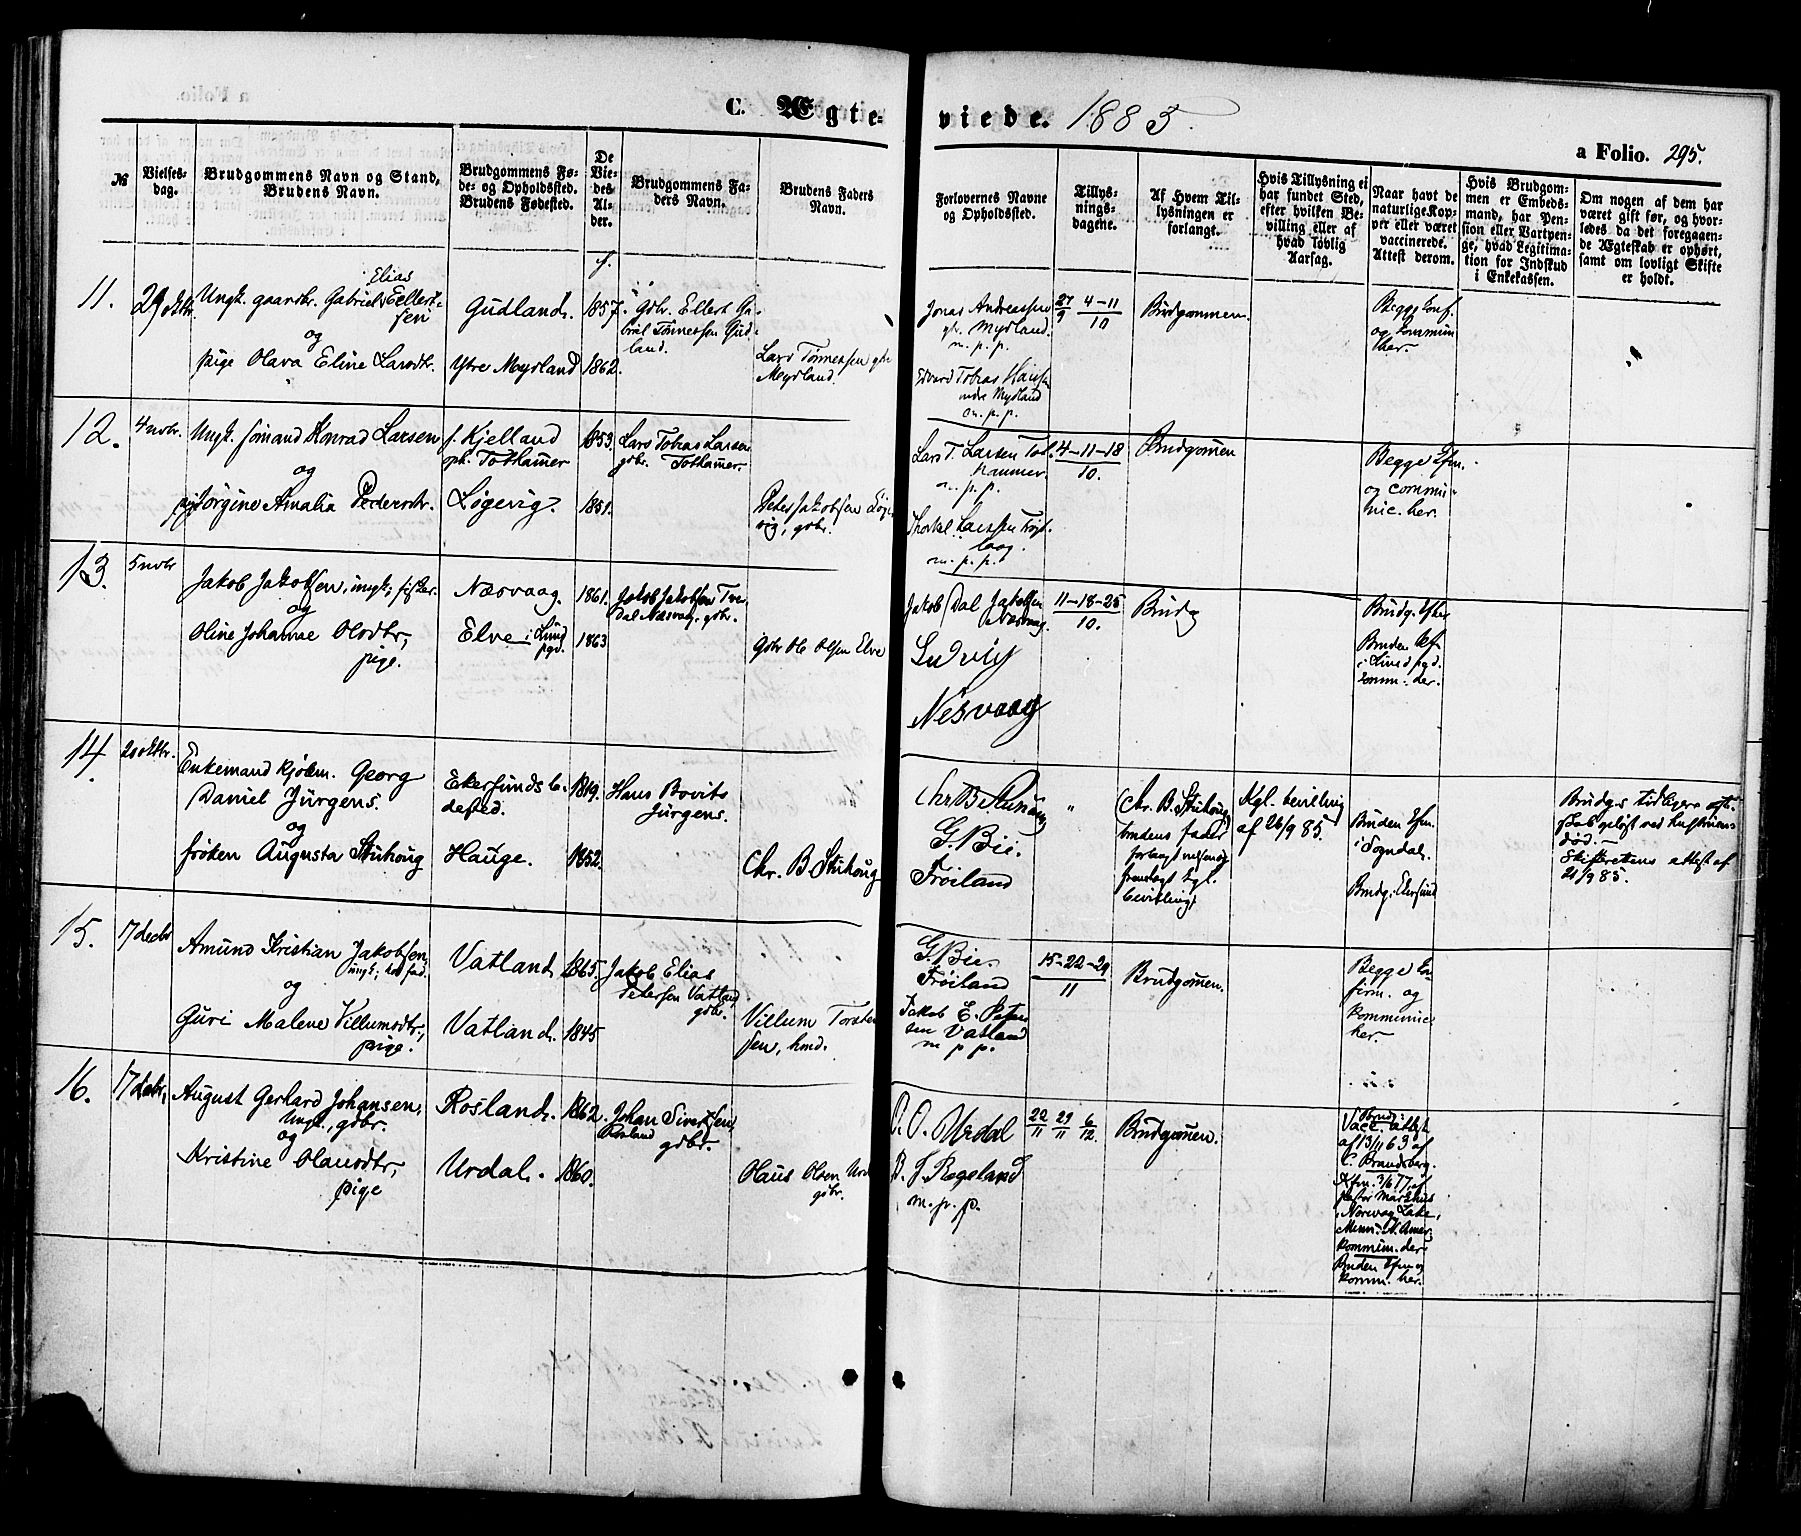 C. Ægte-
viede. 1885.
a Folio. 295.
№
Vielses-
dag.
Brudgommens Navn og Stand,
Brudens Navn.
Brudgommens Fø-
de- og Opholdssted.
Brudens Fødested.
De
Vie-
des
Al-
der.
Brudgommens Fa-
ders Navn.
Brudens Faders
Navn.
Forlovernes Navne
og Opholdssted.
Tillys-
nings-
dagene.
Af Hvem Til-
lysningen er
forlangt.
Hvis Tillysning ei
har fundet Sted,
efter hvilken Be-
villing eller af
hvad lovlig
Aarsag.
Naar havt de
naturlige Kop-
per eller været
vaccinerede.
Attest derom.
Hvis Brudgom-
men er Embeds-
mand, har Pen-
sion eller Vartpen-
ge, hvad Legitima-
tion for Indskud
i Enkekassen.
Om nogen af dem har
været gift før, og hvor-
ledes da det foregaaen-
de Ægteskab er ophørt,
samt om lovligt Skifte
er holdt.
11.
29 oktbr.
Elias
Ungk. gaardbr. Gabriel Ellert-
sen
og
pige Olava Eline Larsdtr.
f.
Gudland.
Ytre Mydland
1857.
1862.
Gbr. Ellert Ga-
briel Tønnessen Gud-
land.
Lars Tønnessen gbr
Mydland.
Jonas Andreassen
gbr. Mydland.
m. p. p.
Edvard Tobias Hansen
indre Mydland
m. p. p.
27/9 4-11/10
Brudgommen.
Begge Conf.
og kommun
her.
12.
4 novbr.
Ungk. sømand Konrad Larsen
og
pige Jørgine Amalia Pedersdtr.
f. Kjelland
oph. Tothamer
Løgevig.
1853.
1851.
Lars Tobias Larsen
gdbr. Tothamer.
Peder Jakobsen Løge-
vig, gdbr.
Lars T. Larsen Tot-
hammer.
m. p. p.
Thorkel Larssen
m. p. p.
4-11-18
10.
Brudgomen
Begge Cfm.
og commu-
nic. her.
13.
5 novbr
Jakob Jakobsen, ungk; fisker.
og
Oline Johanne Olsdtr,
pige.
Næsvaag.
Elve i Lund
pgd.
1861.
1863
Jakob Jakobsen Tve-
dal Næsvaag, gdbr.
Gdbr Ole Olsen Elve
Jakob Dal Jakobsen
Næsvag.
Ludvig
Nesvaag
11-18-25
10.
Brudg
Brudg. Cf her
Bruden Cf
i Lund pgd.
komm. der.
14.
20 oktbr.
Enkemand kjøbm. Georg
Daniel Jürgens.
og
frøken Augusta Stuhoug
Ekersunds la-
dested.
Hauge.
1819.
1852.
Hans Bovits
Jürgens.
Chr. B Stuhoug
Chr B Stuhoug
G. Bie.
Frøiland
"
Chr. B. Stuhoug
brudens fader
forlangt vielsen og
fremlagt kgl.
bevilling
Kgl. bevilling
af 26/9 85.
Bruden Cfm.
i Sogndal.
Brudg. i Ekersund
Brudg.s tidligere ægte-
skab opløst ved hustruens
død.—
Skifterettens attest af
21/9 85.
15.
17 decbr
Amund Kristian Jakobsen,
ungk; hos fad.
og
Guri Malene Villumsdtr,
pige.
Vatland.
Vatland.
1865.
1845
Jakob Elias
Petersen Vatland
gdbr.
Villum Torsten-
sen, hmd.
G. Bie.
Frøiland
Jakob E. Peter-
sen Vatland
m p p.
15-22-29
11
Brudgomen.
Begge Con-
firm. og
kommunic
her.
16.
17 decbr,
August Gerhard Johansen,
Ungk., gdbr.
og
Kristine Olausdtr,
pige
Rosland.
Urdal.
1862.
1860.
Johan Sivertsen
Rosland
gdbr.
Olaus Olsen Urdal
gdbr.
O. O. Urdal
B. T. Regeland
m. p. p.
22/11 29/11 6/12.
Brudgomen.
Brudg:
Vacc. attest
af 13/11 63 af
C. Brandsberg.
Cfm. 3/6 77 af
pastor Markhus
i Norway Lake,
Minn. N. Amer;
kommun. der.
Bruden Cfm og
komm. her.